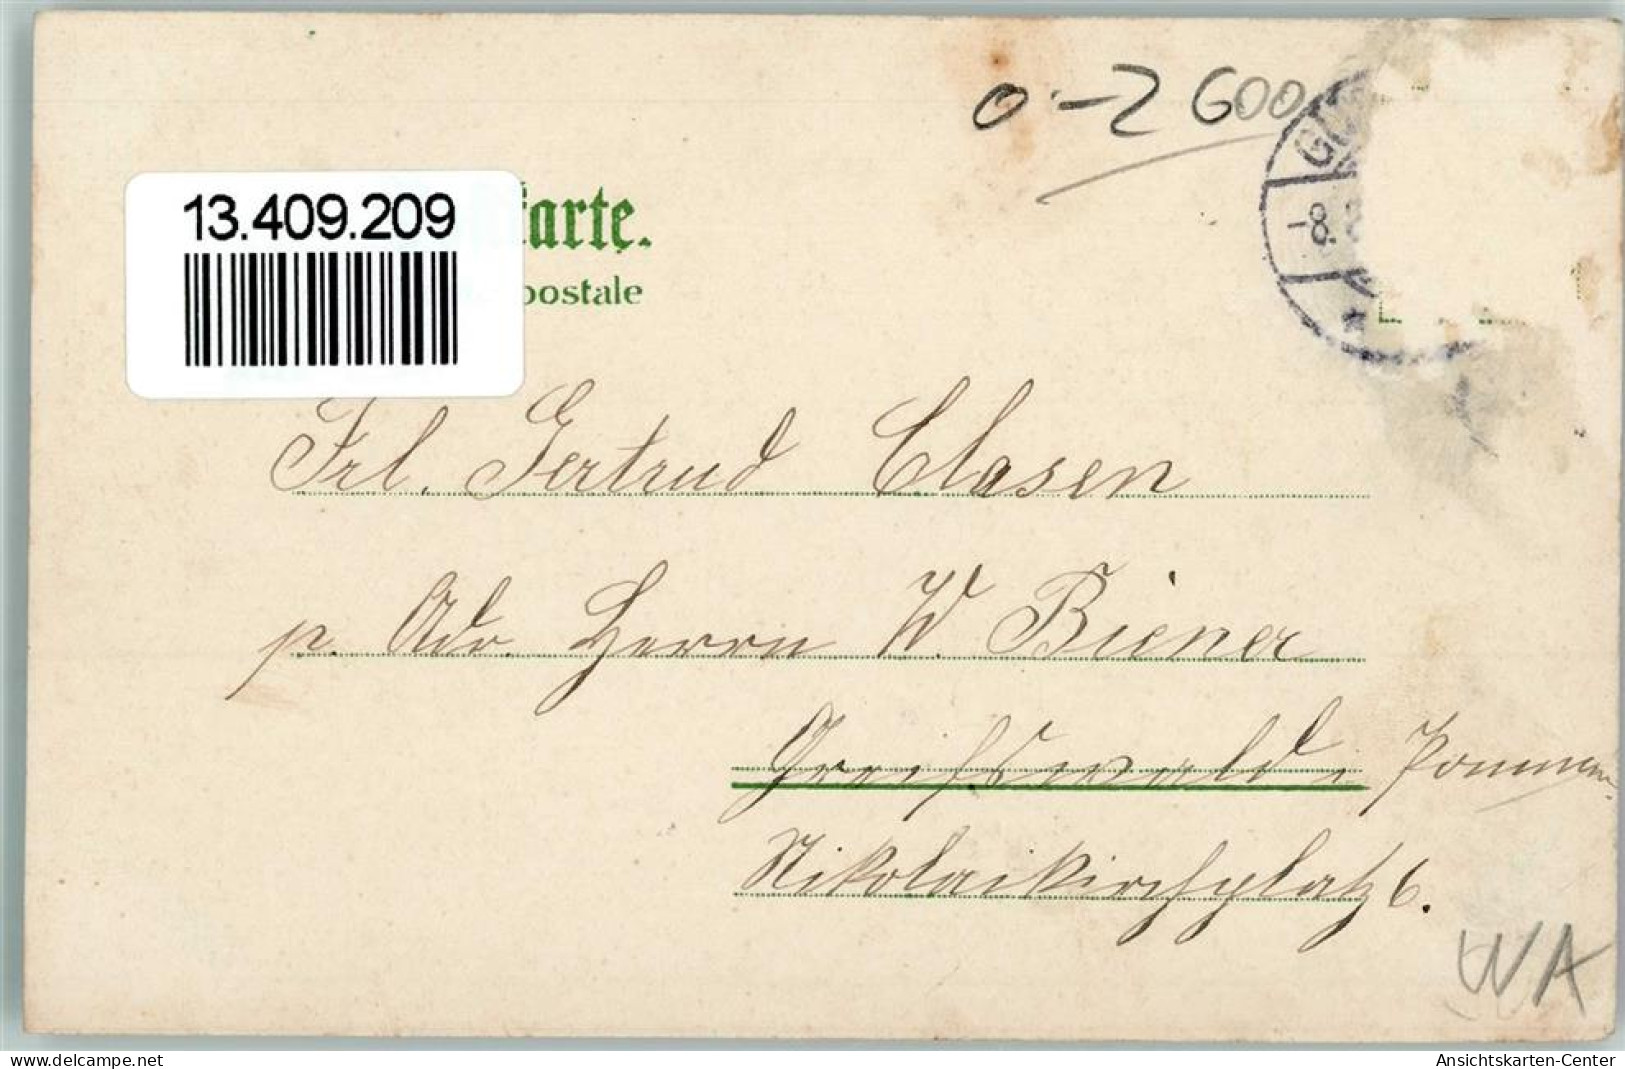 0-2600
13.409.209
karte.
postale
-8.
Frl. Gertrud Clasen
p. Adr. Herrn W. Biener
Greifswald i Pommern.
Nikolaikirchplatz 6.
WA
delcampe.net
Ansichtskarten-Center